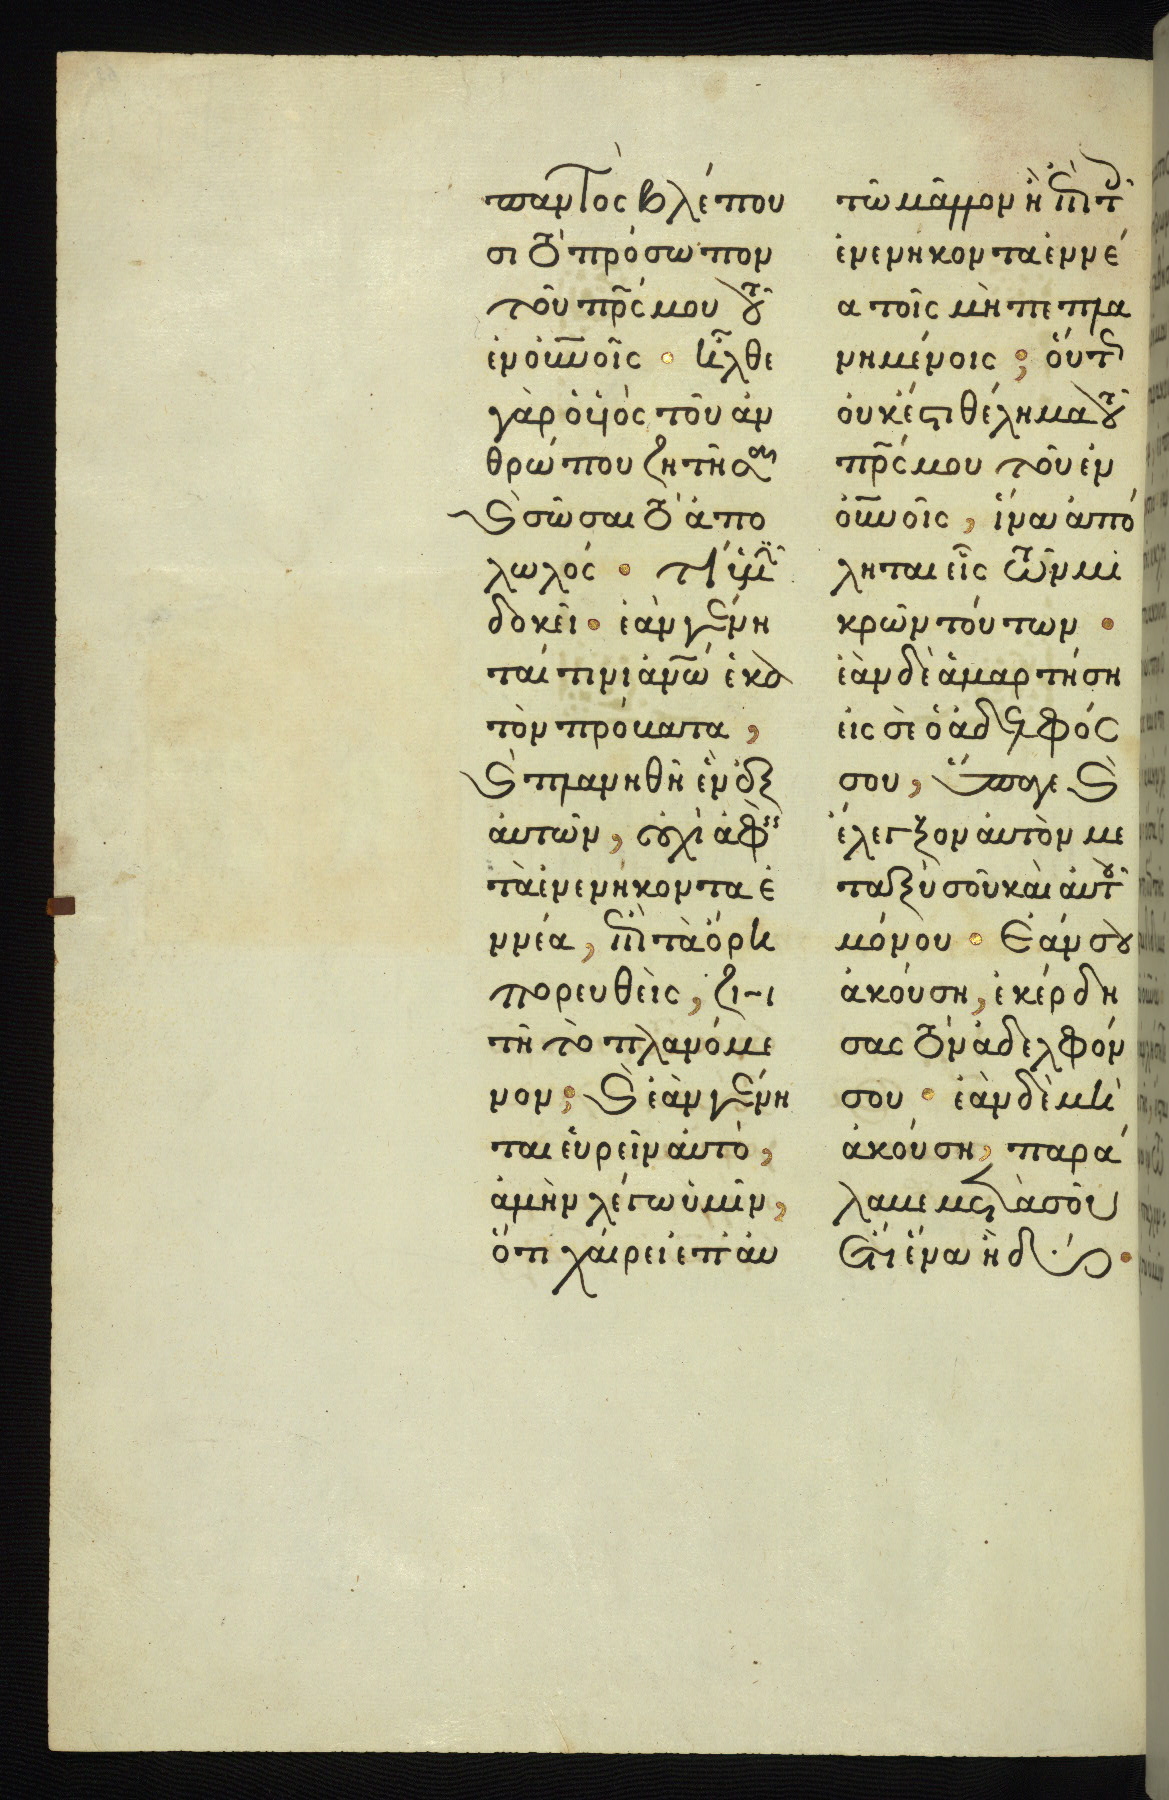 παντὸς βλέπου
σι τὸ πρόσωπον
τοῦ πρς μου τοῦ
ἐν οὐνοῖς · ἦλθε
γὰρ ὁ υἱὸς τοῦ ἀν
θρώπου ζητῆσαι
καὶ σῶσαι τὸ ἀπο
λωλός · τί ὑμῖν
δοκεῖ · ἐὰν γένη
ταί τινι ἀνω ἑκα
τὸν πρόβατα,
καὶ πλανηθῆ ἓν ἐξ
αὐτῶν, οὐχὶ ἀφεὶς
τὰ ἐνενήκοντα ἐ
ννέα, ἐπὶ τὰ ὄρη
πορευθεὶς, ζη
τῆ τὸ πλανόμε
νον; καὶ ἐὰν γένη
ται εὑρεῖν αὐτό,
ἀμὴν λέγω ὑμῖν,
ὅτι χαίρει ἐπ αὐ
τῶ μᾶλλον ἢ ἐπὶ τοῖς
ἐνενήκοντα ἐννέ
α τοῖς μὴ πεπλα
νημένοις; οὕτως
οὐκ ἔστι θέλημα τοῦ
πρς μου τοῦ ἐν
οὐνοῖς, ἵνα ἀπό
ληται εἷς τῶν μι
κρῶν τούτων ·
ἐὰν δὲ ἁμαρτήση
εἰς σὲ ὁ ἀδελφός
σου, ὕπαγε καὶ
ἔλεγξον αὐτὸν με
ταξὺ σοῦ καὶ αὐτοῦ
μόνου · Ἐάν σου
ἀκούση, ἐκέρδη
σας τὸν ἀδελφόν
σου · ἐὰν δὲ μὴ
ἀκούση, παρά
λαβε μετὰ σοῦ
ἔτι ἕνα ἢ δύο ·